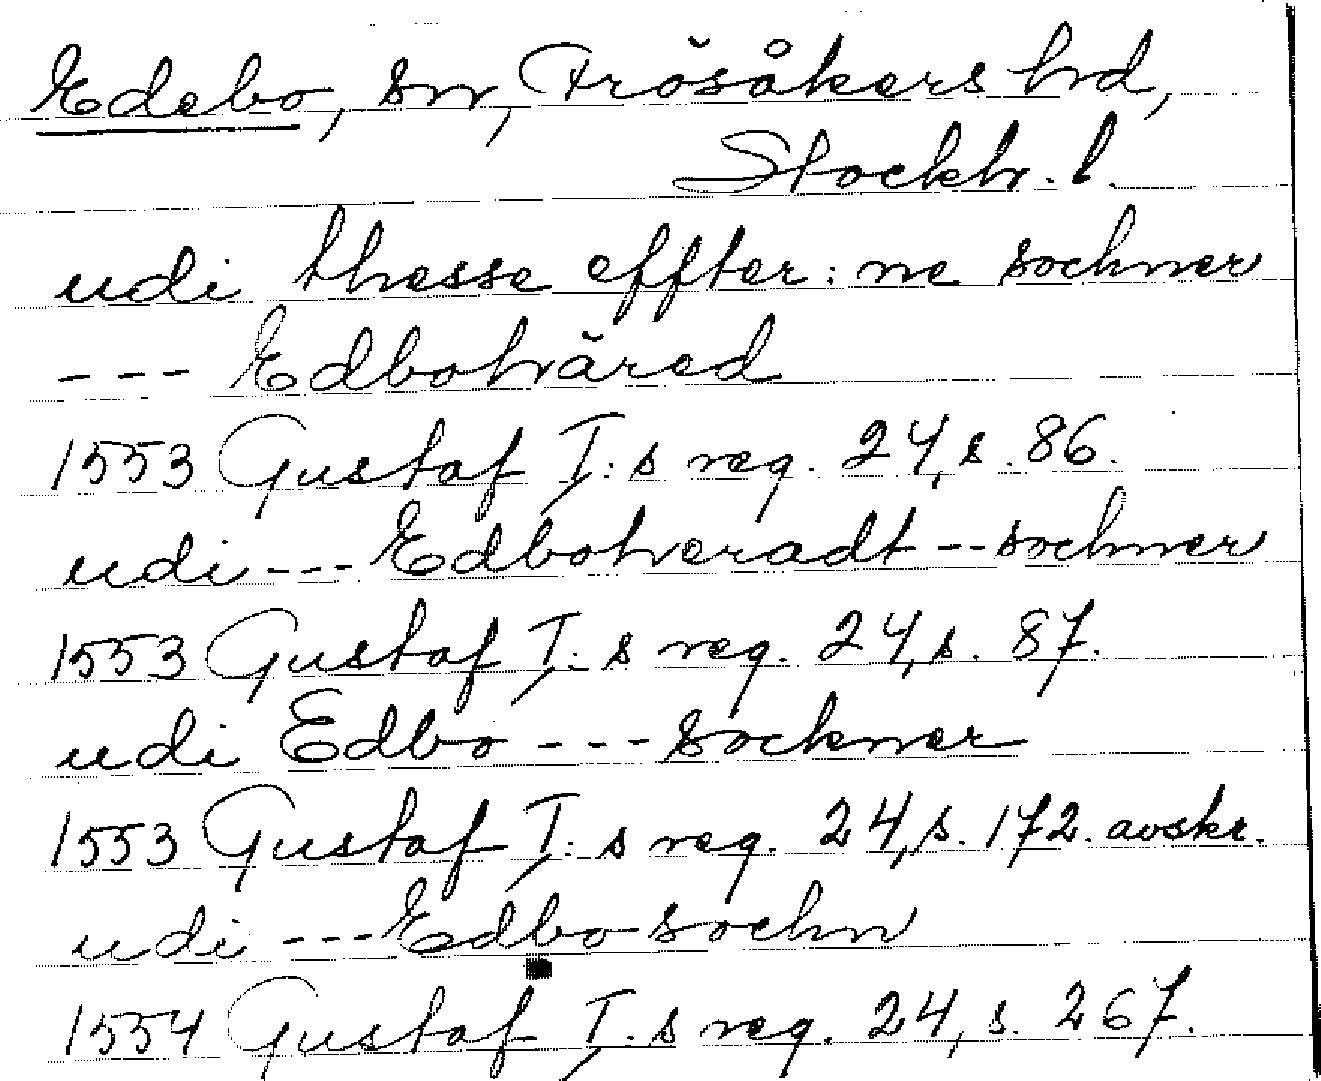 Edebo, sn, Frösåkers hd,
Stockh. l.
udi thesse effter: ne sochner
--- Edbohäred
1553 Gustaf I: s reg. 24, s. 86.
udi --- Edboheradt -- sochner
1553 Gustaf I: s reg. 24, s. 87.
udi Edbo --- sockner
1553 Gustaf I: s reg. 24, s. 172. avskr.
udi --- Edbo sochn
1554 Gustaf I. s reg. 24, s. 267.